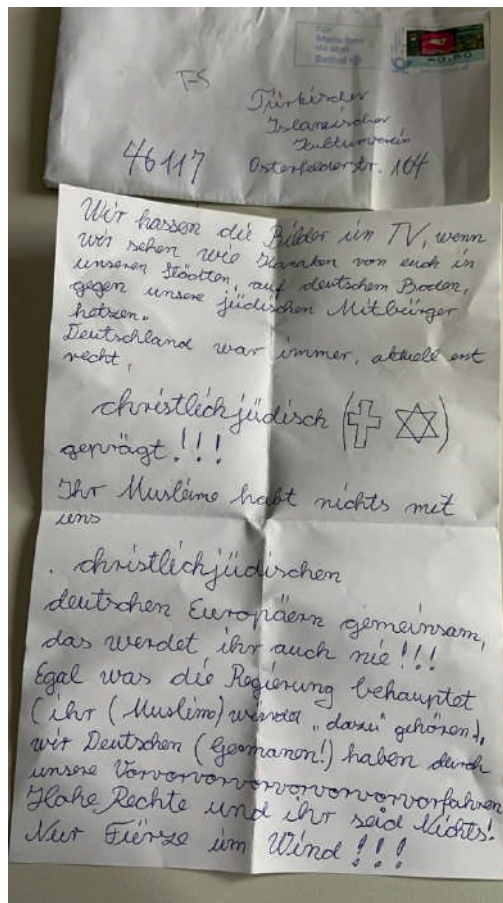 Für
Menschen
da sein
Bethel
60,80
FS
Türkischer
Islamischer
Kulturverein
46117 Osterfelderstr. 104
Wir hassen die Bilder im TV, wenn
wir sehen wie Kanaken von euch in
unseren Städten, auf deutschem Boden,
gegen unsere jüdischen Mitbürger
hetzen.
Deutschland war immer, aktuell erst
recht,
christlichjüdisch
geprägt!!!
Ihr Muslime habt nichts mit
uns
. christlichjüdischen
deutschen Europäern gemeinsam,
das werdet ihr auch nie!!!
Egal was die Regierung behauptet
(ihr (Muslime) würdet „dazu" gehören),
wir Deutschen (Germanen!) haben durch
unsere Vorvorvorvorvorvorvorvorfahren
Hohe Rechte und ihr seid Nichts!
Nur Fürze im Wind!!!